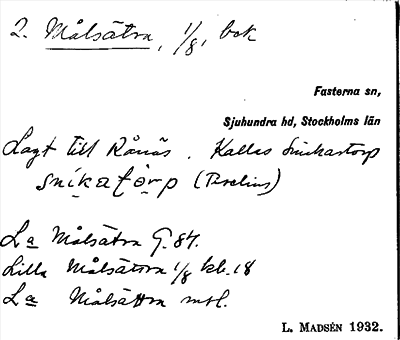 2. Målsätra, 1/8, bok
Fasterna sn,
Sjuhundra hd, Stockholms län
Lagt till Rånäs. Kallas Snickartorp
snikatɔrp (Perelius)
La Målsätra G. 87.
Lilla Målsätra 1/8 kb. 18
La Målsättra
L. MADSÉN 1932.